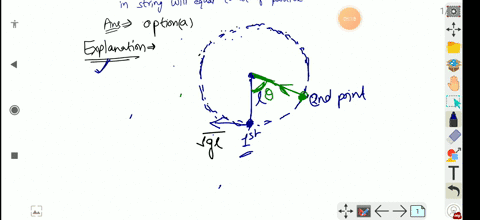 in string will equal to
Ans ⇒ option(a)
Explanation →
l θ
2nd point
√gl
1st
1